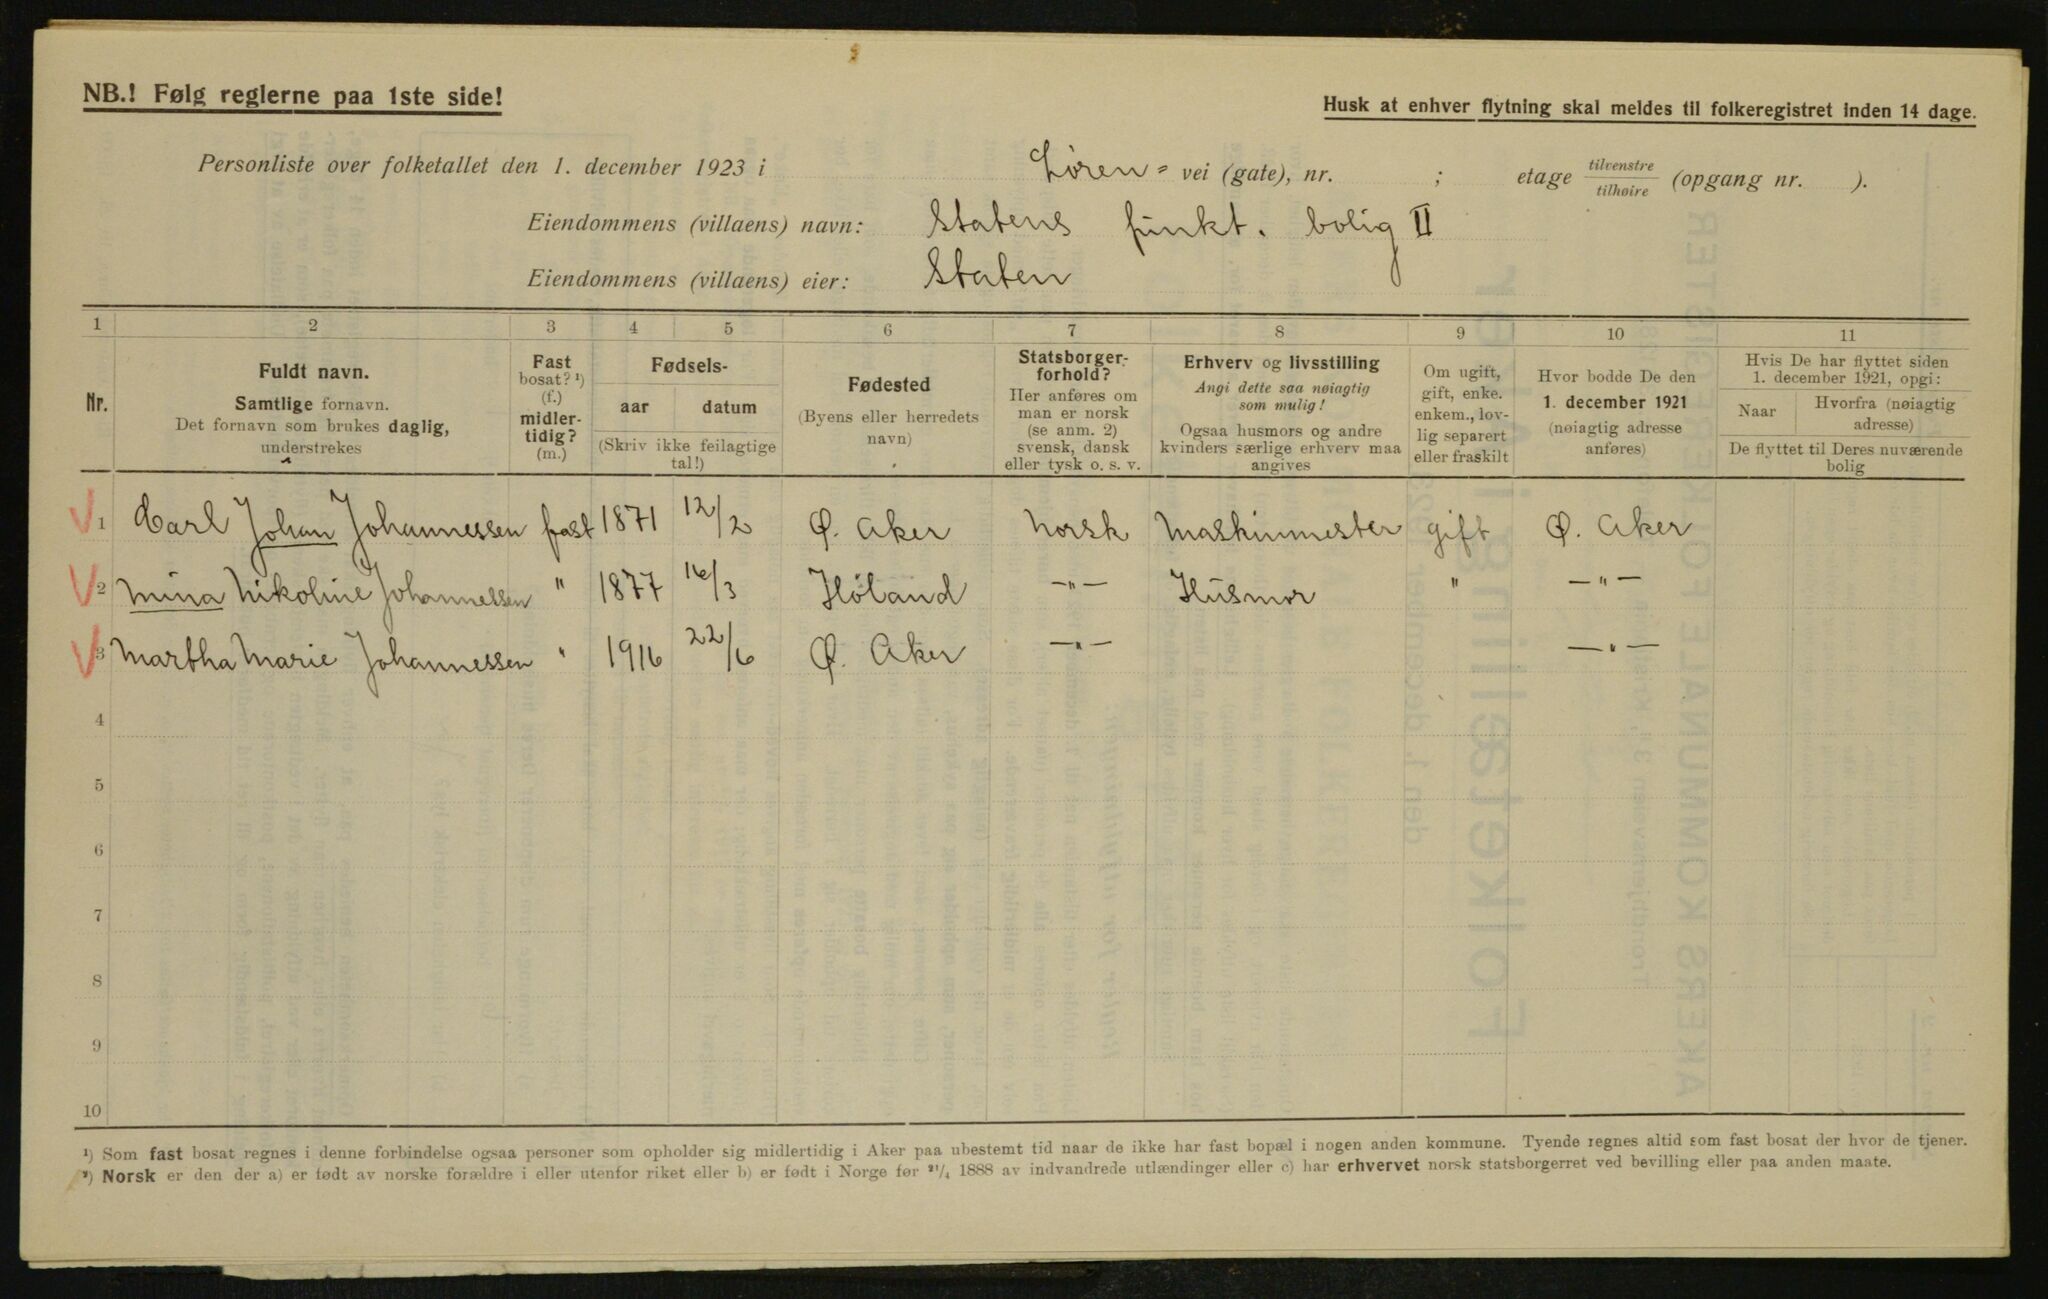 NB.! Følg reglerne paa 1ste side!
Husk at enhver flytning skal meldes til folkeregistret inden 14 dage.
Personliste over folketallet den 1. december 1923 i Løren= vei (gate), nr. ; etage tilvenstre tilhøire (opgang nr. ).
Eiendommens (villaens) navn: Statens funkt. bolig II
Eiendommens (villaens) eier: Staten
1 2 3 4 5 6 7 8 9 10 11
Nr.
Fuldt navn.
Samtlige fornavn.
Det fornavn som brukes daglig,
understrekes
Fast
bosat? ¹)
(f.)
midler-
tidig?
(m.)
Fødsels-
aar datum
(Skriv ikke feilagtige
tal!)
Fødested
(Byens eller herredets
navn)
Statsborger-
forhold?
Her anføres om
man er norsk
(se anm. 2)
svensk, dansk
eller tysk o. s. v.
Erhverv og livsstilling
Angi dette saa nøiagtig
som mulig!
Ogsaa husmors og andre
kvinders særlige erhverv maa
angives
Om ugift,
gift, enke.
enkem., lov-
lig separert
eller fraskilt
Hvor bodde De den
1. december 1921
(nøiagtig adresse
anføres)
Hvis De har flyttet siden
1. december 1921, opgi:
Naar
Hvorfra (nøiagtig
adresse)
De flyttet til Deres nuværende
bolig
1 Carl Johan Johannessen fast 1871 12/2 Ø. Aker Norsk Maskinmester gift Ø. Aker
2 Mina Nikoline Johannessen " 1877 16/3 Høland —"— Husmor " —"—
3 Martha Marie Johannessen " 1916 22/6 Ø. Aker —"— —"—
4
5
6
7
8
9
10
¹) Som fast bosat regnes i denne forbindelse ogsaa personer som opholder sig midlertidig i Aker paa ubestemt tid naar de ikke har fast bopæl i nogen anden kommune. Tyende regnes altid som fast bosat der hvor de tjener.
²) Norsk er den der a) er født av norske forældre i eller utenfor riket eller b) er født i Norge før ²¹/₄ 1888 av indvandrede utlændinger eller c) har erhvervet norsk statsborgerret ved bevilling eller paa anden maate.